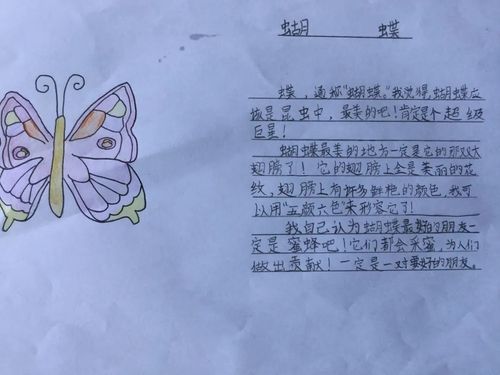 蝴 蝶
蝶，通称“蝴蝶。”我觉得，蝴蝶应
该是昆虫中，最美的吧！肯定是个超级
巨星！
蝴蝶最美的地方一定是它的那双大
翅膀了！它的翅膀上全是美丽的花
纹，翅膀上有许多鲜艳的颜色，我可
以用“五颜六色”来形容它了！
我自己认为蝴蝶最好的朋友一
定是蜜蜂吧！它们都会采蜜，为人们
做出贡献！一定是一对要好的朋友。